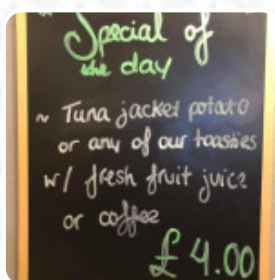 Special of
the day
~ Tuna jacket potato
or any of our toasties
w/ fresh fruit juice
or coffee
£4.00